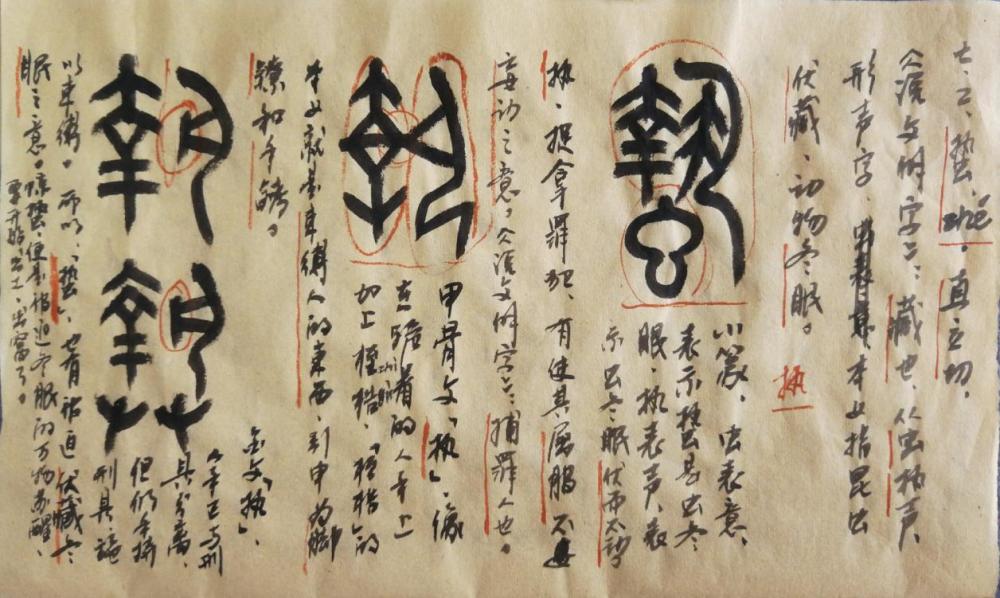 七二、蛰、zhé。直立切，
《说文解字》：藏也。从虫执声。
形声字。本义指昆虫
伏藏、动物冬眠。
执
蟄
小篆，虫表意，
表示蛰是虫冬
眠，执表声，表
示虫冬眠伏而不动
执、捉拿罪犯、有使其屈服不
妄动之意。《说文解字》：捕罪人也。
執
甲骨文「执」，像
在跪着的人手上
加上桎梏，「桎梏」的
zhì
本义就是束缚人的东西，引申为脚
镣和手铐。
執
執
金文「执」，
人手已与刑
具分离，
但仍手
刑具
以束缚。所以，「蛰」也有被迫伏藏冬
眠之意。惊蛰便是被迫冬眠的万物苏醒，
要开始出土、出窝了。